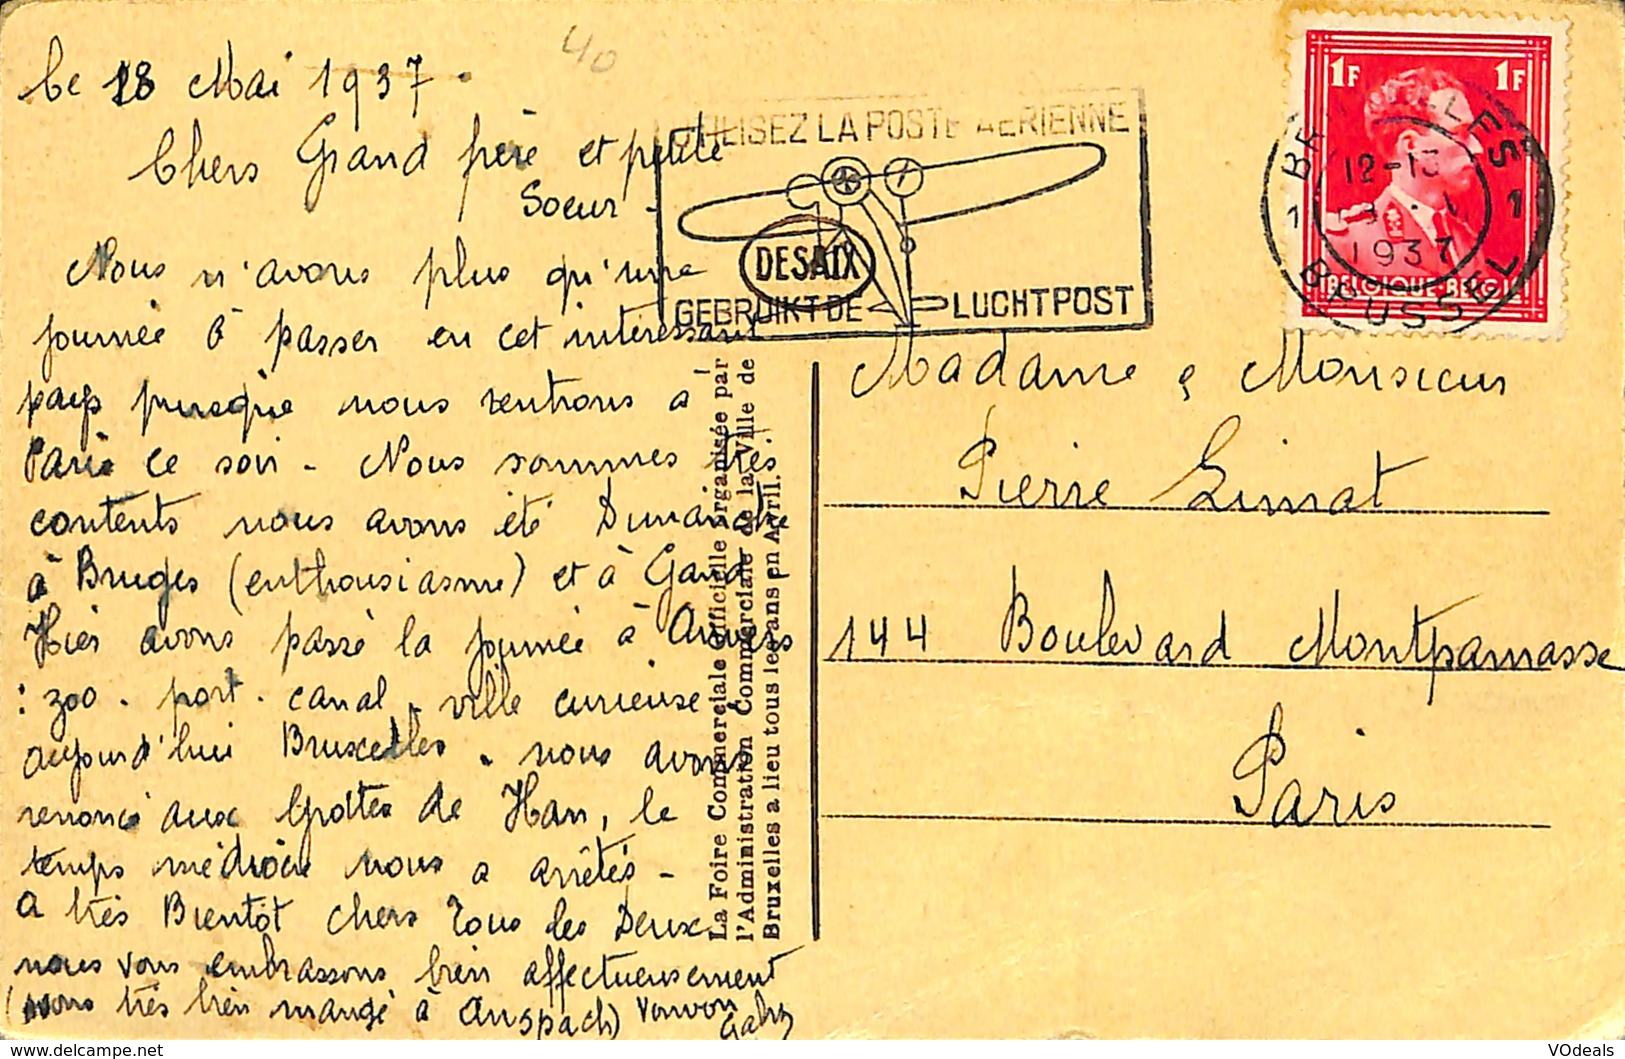 le 18 Mai 1937.
40
Chers Grand frère et petite
Soeur -
Nous n'avons plus qu'une
journée à passer en cet intéressant
pays puisque nous rentrons à
Paris ce soir - Nous sommes très
contents nous avons été Dimanche
à Bruges (enthousiasme) et à Gand
Hier avons passé la journée à Anvers
: zoo - port - canal - ville curieuse
aujourd'hui Bruxelles. nous avons
renoncé aux Grottes de Han, le
temps médiocre nous a arrêtés -
A très Bientôt chers Tous les Deux
nous vous embrassons bien affectueusement
(avons très bien mangé à Anspach) Vonvon
Gaby
UTILISEZ LA POSTE AERIENNE
DESAIX
GEBRUIKT DE LUCHTPOST
1F 1F
BELGIQUE-BELGIE
BRUXELLES 1
12-13
1937
1 BRUSSEL
La Foire Commerciale Officielle organisée par
l'Administration Commerciale de la Ville de
Bruxelles a lieu tous les ans en Avril.
Madame & Monsieur
Pierre Limat
144 Boulevard Montparnasse
Paris
VOdeals